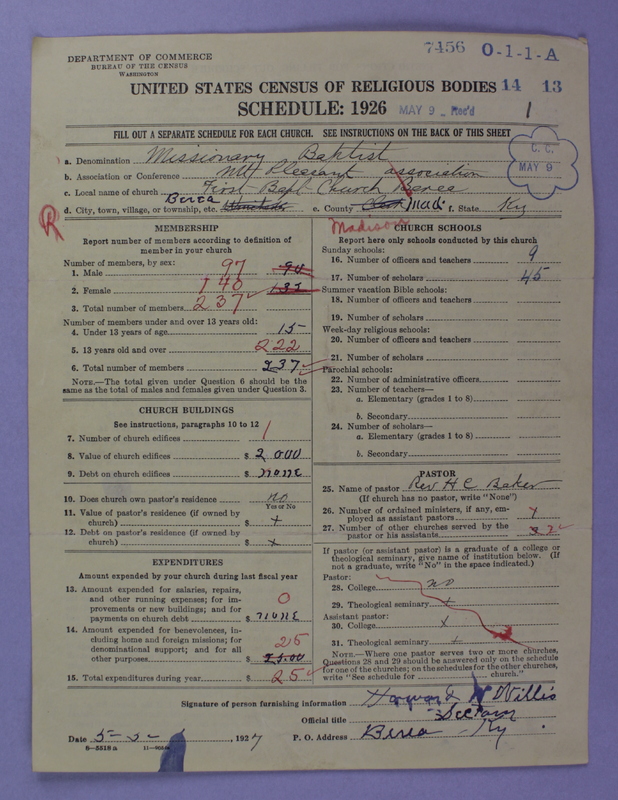 7456 O-1-1-A
DEPARTMENT OF COMMERCE
BUREAU OF THE CENSUS
WASHINGTON
UNITED STATES CENSUS OF RELIGIOUS BODIES 14 13
SCHEDULE: 1926 MAY 9 - Rec'd 1
FILL OUT A SEPARATE SCHEDULE FOR EACH CHURCH. SEE INSTRUCTIONS ON THE BACK OF THIS SHEET
C. C.
MAY 9
a. Denomination Missionary Baptist
b. Association or Conference Mt Pleasant association
c. Local name of church First Bapt Church Berea
d. City, town, village, or township, etc. Berea e. County Madi f. State Ky
R
Madison
MEMBERSHIP
Report number of members according to definition of
member in your church
Number of members, by sex:
1. Male 97 90
2. Female 140 132
3. Total number of members 237
Number of members under and over 13 years old:
4. Under 13 years of age 15
5. 13 years old and over 222
6. Total number of members 237
NOTE.—The total given under Question 6 should be the
same as the total of males and females given under Question 3.
CHURCH BUILDINGS
See instructions, paragraphs 10 to 12
7. Number of church edifices 1
8. Value of church edifices $ 2000
9. Debt on church edifices $ none
10. Does church own pastor's residence no
Yes or No
11. Value of pastor's residence (if owned by
church) $ x
12. Debt on pastor's residence (if owned by
church) $ x
EXPENDITURES
Amount expended by your church during last fiscal year
13. Amount expended for salaries, repairs,
and other running expenses; for im-
provements or new buildings; and for
payments on church debt $ none 0
14. Amount expended for benevolences, in-
cluding home and foreign missions; for
denominational support; and for all
other purposes $ 25.00 25
15. Total expenditures during year $ 25
CHURCH SCHOOLS
Report here only schools conducted by this church
Sunday schools:
16. Number of officers and teachers 9
17. Number of scholars 45
Summer vacation Bible schools:
18. Number of officers and teachers
19. Number of scholars
Week-day religious schools:
20. Number of officers and teachers
21. Number of scholars
Parochial schools:
22. Number of administrative officers
23. Number of teachers—
a. Elementary (grades 1 to 8)
b. Secondary
24. Number of scholars—
a. Elementary (grades 1 to 8)
b. Secondary
PASTOR
25. Name of pastor Rev H C Baker
(If church has no pastor, write "None")
26. Number of ordained ministers, if any, em-
ployed as assistant pastors x
27. Number of other churches served by the
pastor or his assistants 2
If pastor (or assistant pastor) is a graduate of a college or
theological seminary, give name of institution below. (If
not a graduate, write "No" in the space indicated.)
Pastor:
28. College no
29. Theological seminary x
Assistant pastor:
30. College x
31. Theological seminary x
NOTE.—Where one pastor serves two or more churches,
Questions 28 and 29 should be answered only on the schedule
for one of the churches; on the schedules for the other churches,
write "See schedule for church."
Signature of person furnishing information Howard W Willis
Official title
Date 5-5-, 1927 P. O. Address Berea Ky
8-5518 a